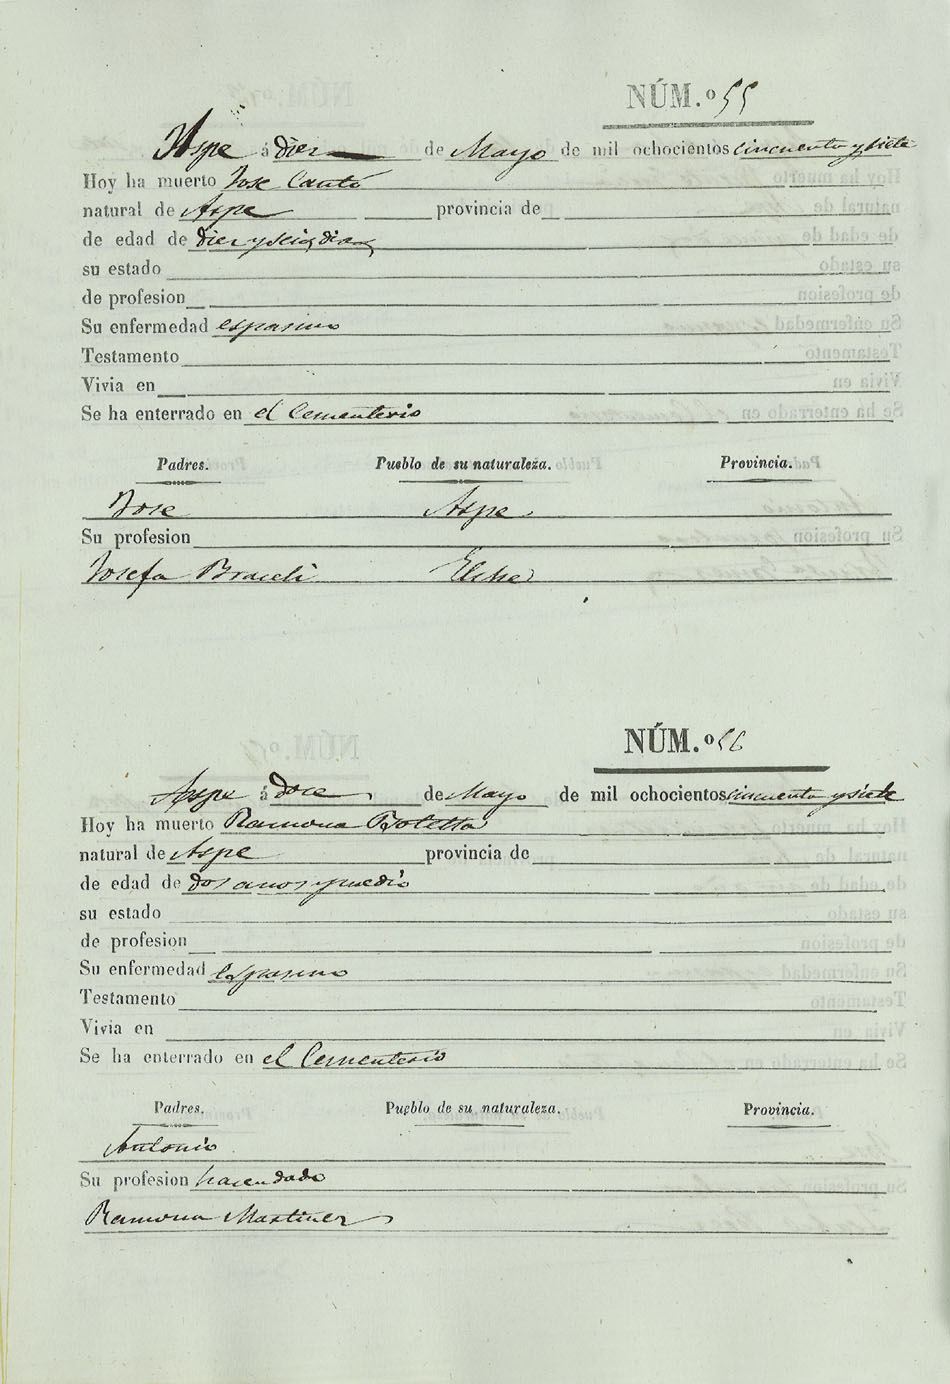 NÚM.º 55
Aspe á diez de Mayo de mil ochocientos cincuenta y siete
Hoy ha muerto Jose Cantó
natural de Aspe provincia de
de edad de diez y seis dias
su estado
de profesion
Su enfermedad espasmo
Testamento
Vivia en
Se ha enterrado en el Cementerio
Padres. Pueblo de su naturaleza. Provincia.
Jose Aspe
Su profesion
Josefa Braceli Elche
NÚM.º 56
Aspe á doce de Mayo de mil ochocientos cincuenta y siete
Hoy ha muerto Ramona Botella
natural de Aspe provincia de
de edad de dos anos y medio
su estado
de profesion
Su enfermedad espasmo
Testamento
Vivia en
Se ha enterrado en el Cementerio
Padres. Pueblo de su naturaleza. Provincia.
Antonio
Su profesion hacendado
Ramona Martinez